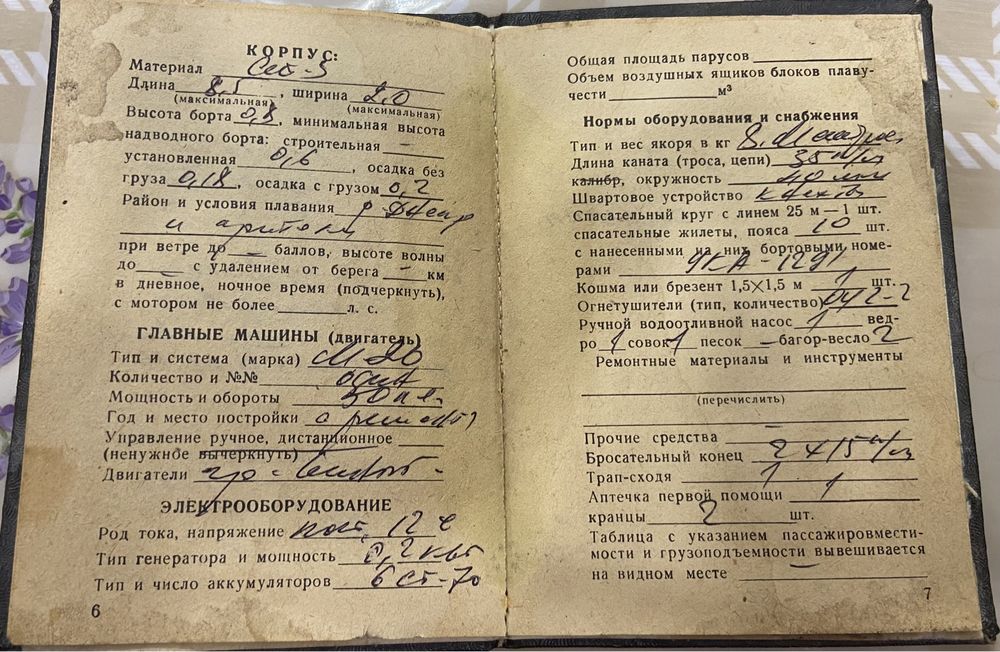 КОРПУС:
Материал Ст-3
Длина 8,5, ширина 2.0
(максимальная) (максимальная)
Высота борта 0,8, минимальная высота
надводного борта: строительная —
установленная 0,6, осадка без
груза 0,18, осадка с грузом 0,2
Район и условия плавания р Днепр
и притоки
при ветре до — баллов, высоте волны
до — с удалением от берега — км
в дневное, ночное время (подчеркнуть),
с мотором не более л. с.
ГЛАВНЫЕ МАШИНЫ (двигатель)
Тип и система (марка)
Количество и №№ один
Мощность и обороты
Год и место постройки
Управление ручное, дистанционное
(ненужное вычеркнуть)
Двигатели
ЭЛЕКТРООБОРУДОВАНИЕ
Род тока, напряжение пост. 12 в
Тип генератора и мощность 0,2 квт
Тип и число аккумуляторов 6 СТ-70
6
Общая площадь парусов
Объем воздушных ящиков блоков плаву-
чести м³
Нормы оборудования и снабжения
Тип и вес якоря в кг 8.
Длина каната (троса, цепи) 35
калибр, окружность 40 мм
Швартовое устройство
Спасательный круг с линем 25 м — 1 шт.
спасательные жилеты, пояса 10 шт.
с нанесенными на них бортовыми номе-
рами
Кошма или брезент 1,5×1,5 м 1 шт.
Огнетушители (тип, количество) ОУ2-2
Ручной водоотливной насос 1 вед-
ро 1 совок 1 песок — багор-весло 2
Ремонтные материалы и инструменты
(перечислить)
Прочие средства —
Бросательный конец 2×15
Трап-сходя 1
Аптечка первой помощи 1
кранцы 2 шт.
Таблица с указанием пассажировмести-
мости и грузоподъемности вывешивается
на видном месте —
7